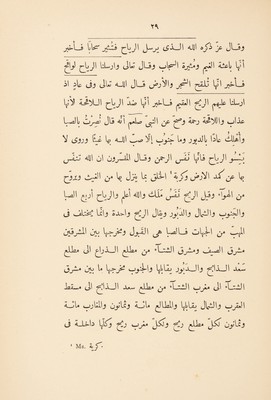 ٢٩
وقـال عزّ ذكره اللـه الـذى يرسل الرياح فتثير سحابًا فـأخبر
أنّها باعثة الغيم ومُثيرة السحاب وقـال تعالى وارسلنا الرياح لواقح
فـأخبر انّها تُلقح الشجر والأرض قـال اللـه تعالى وفى عاد اذ
ارسلنا عليهم الريح العقيم فـأخبر أنّها ضدّ الرياح اللاقحة لأنّها
عذاب واللاقحة رحمة وصحّ عن النبىّ صلعم أنّه قال نُصِرْتُ بالصبا
وأُهْلِكَ عادًا بالدبور وما جَنوب إلّا صبّ اللـه بها غيثًا وروى لا
تسُبّوا الرياح فانّها نَفَس الرحمن وقـال المفسّرون ان اللـه تنفّس
بها عن كمد الارض وكربة¹ الخلق بما ينزل بها من الغيث ويروّح
من الهوآء وقيل الريح نَفَسُ مَلَك واللّه أعلم والرياح أربع الصبا
والجَنوب والشمال والدَبُور ويقال الريح واحدة وانّما يختلف فى
المهبّ من الجهات فـالصبا هى القَبول ومخرجها بين المشرقين
مشرق الصيف ومشرق الشتـآء من مطلع الذراع الى مطلع
سَعد الـذابح والـدَبور يقابلها والجنوب مخرجها ما بين مشرق
الشتـآء الى مغرب الشتـآء من مطلع سعد الذابح الى مسقط
العقرب والشمال يقابلها والمطالع مائـة وثمانون والمغارب مائـة
وثمانون تكلّ مطلع ريح وتكلّ مغرب ريح وكلّها داخلـة فى
¹ Ms. كرية.